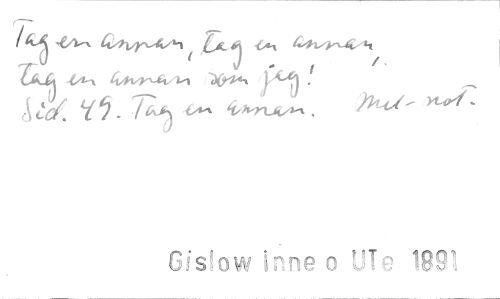 Tag en annan, tag en annan,
tag en annan som jag!
Sid. 49. Tag en annan. Mel-not.
Gislow inne o UTe 1891